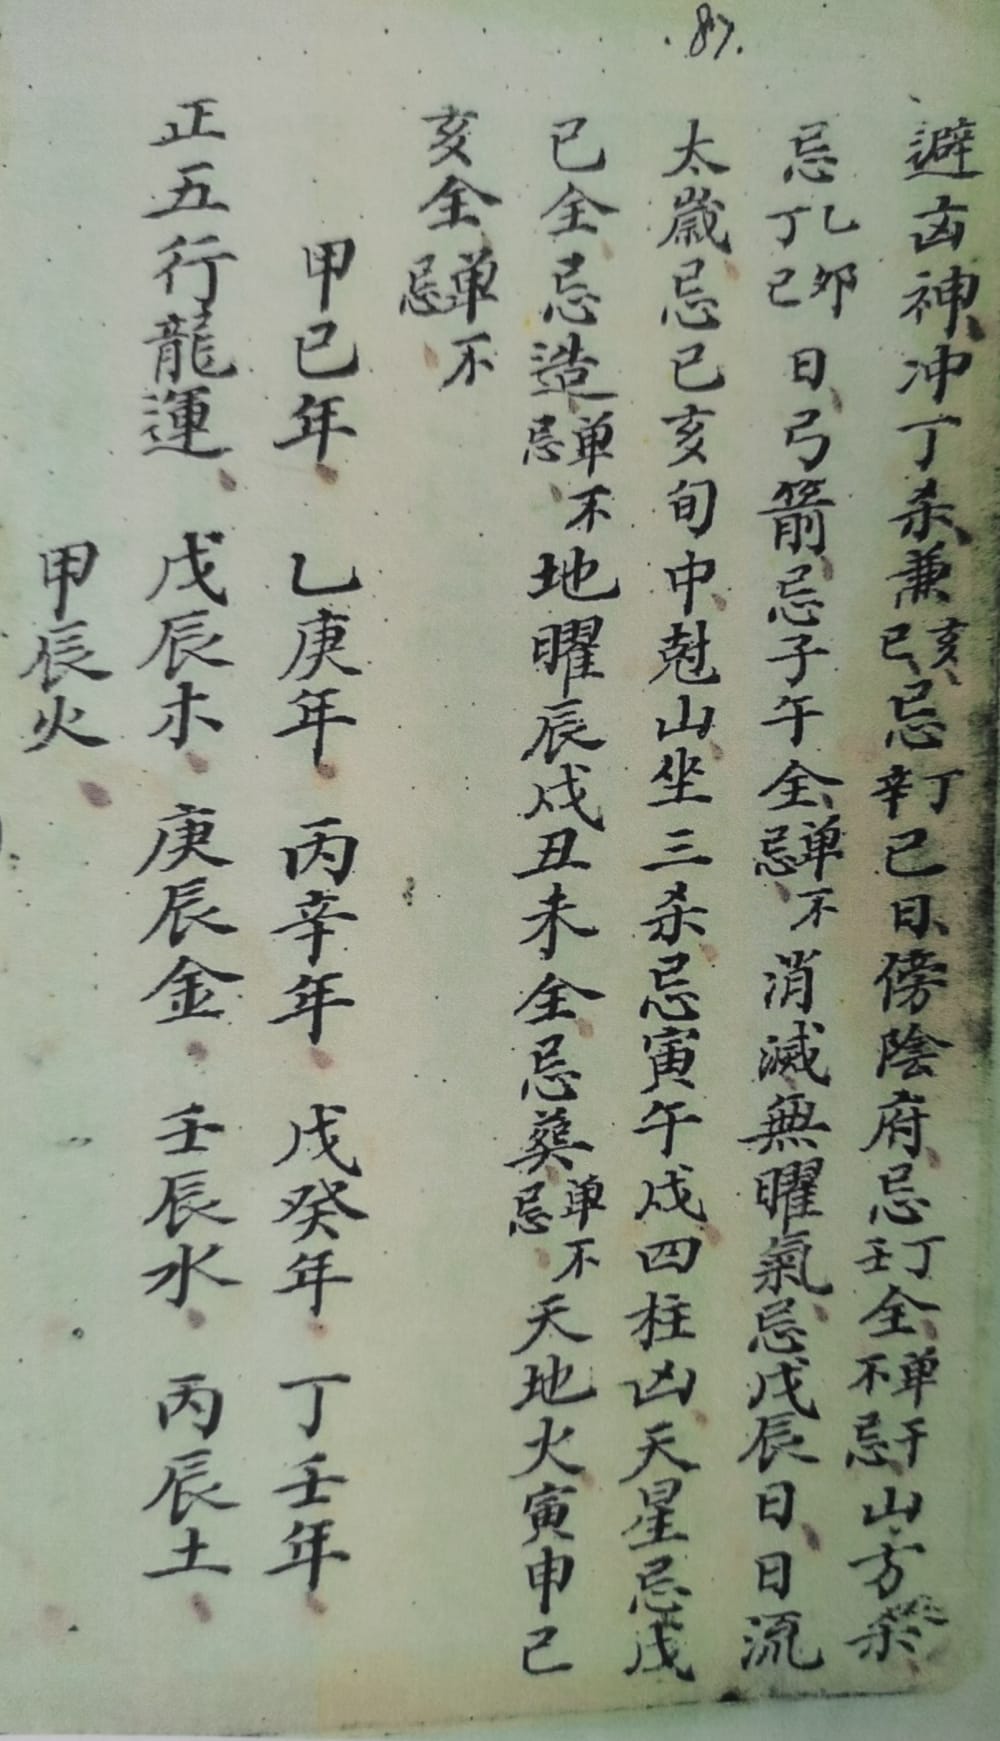 87.
避凶神冲丁杀兼亥巳忌丁辛巳日傍陰府忌丁壬全单干不忌山方杀
忌乙卯丁巳日弓箭忌子午全单不忌消滅無曜氣忌戊辰日日流
太歲忌巳亥旬中尅山坐三杀忌寅午戌四柱凶天星忌戊
巳全忌造单不忌地曜辰戌丑未全忌葵单不忌天地火寅申巳
亥全单不忌
甲巳年 乙庚年 丙辛年 戊癸年 丁壬年
正五行龍運 戊辰木 庚辰金 壬辰水 丙辰土
甲辰火